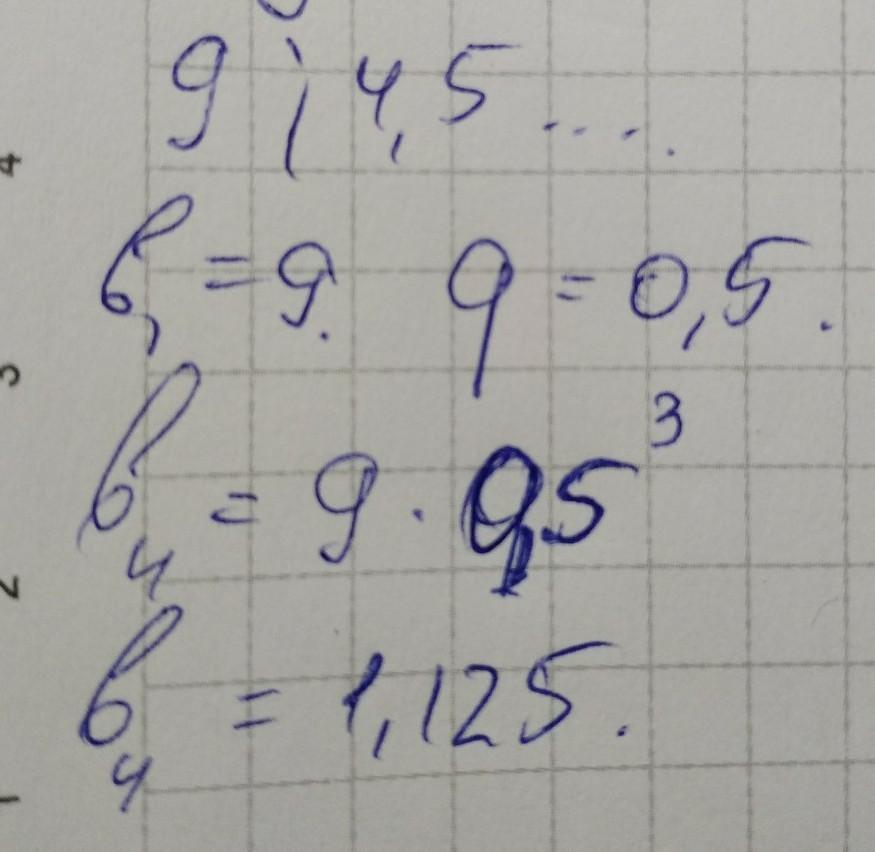 9 ; 4,5 ....
b₁ = 9. q = 0,5.
b₄ = 9 · 0,5³
b₄ = 1,125.
4
3
2
1